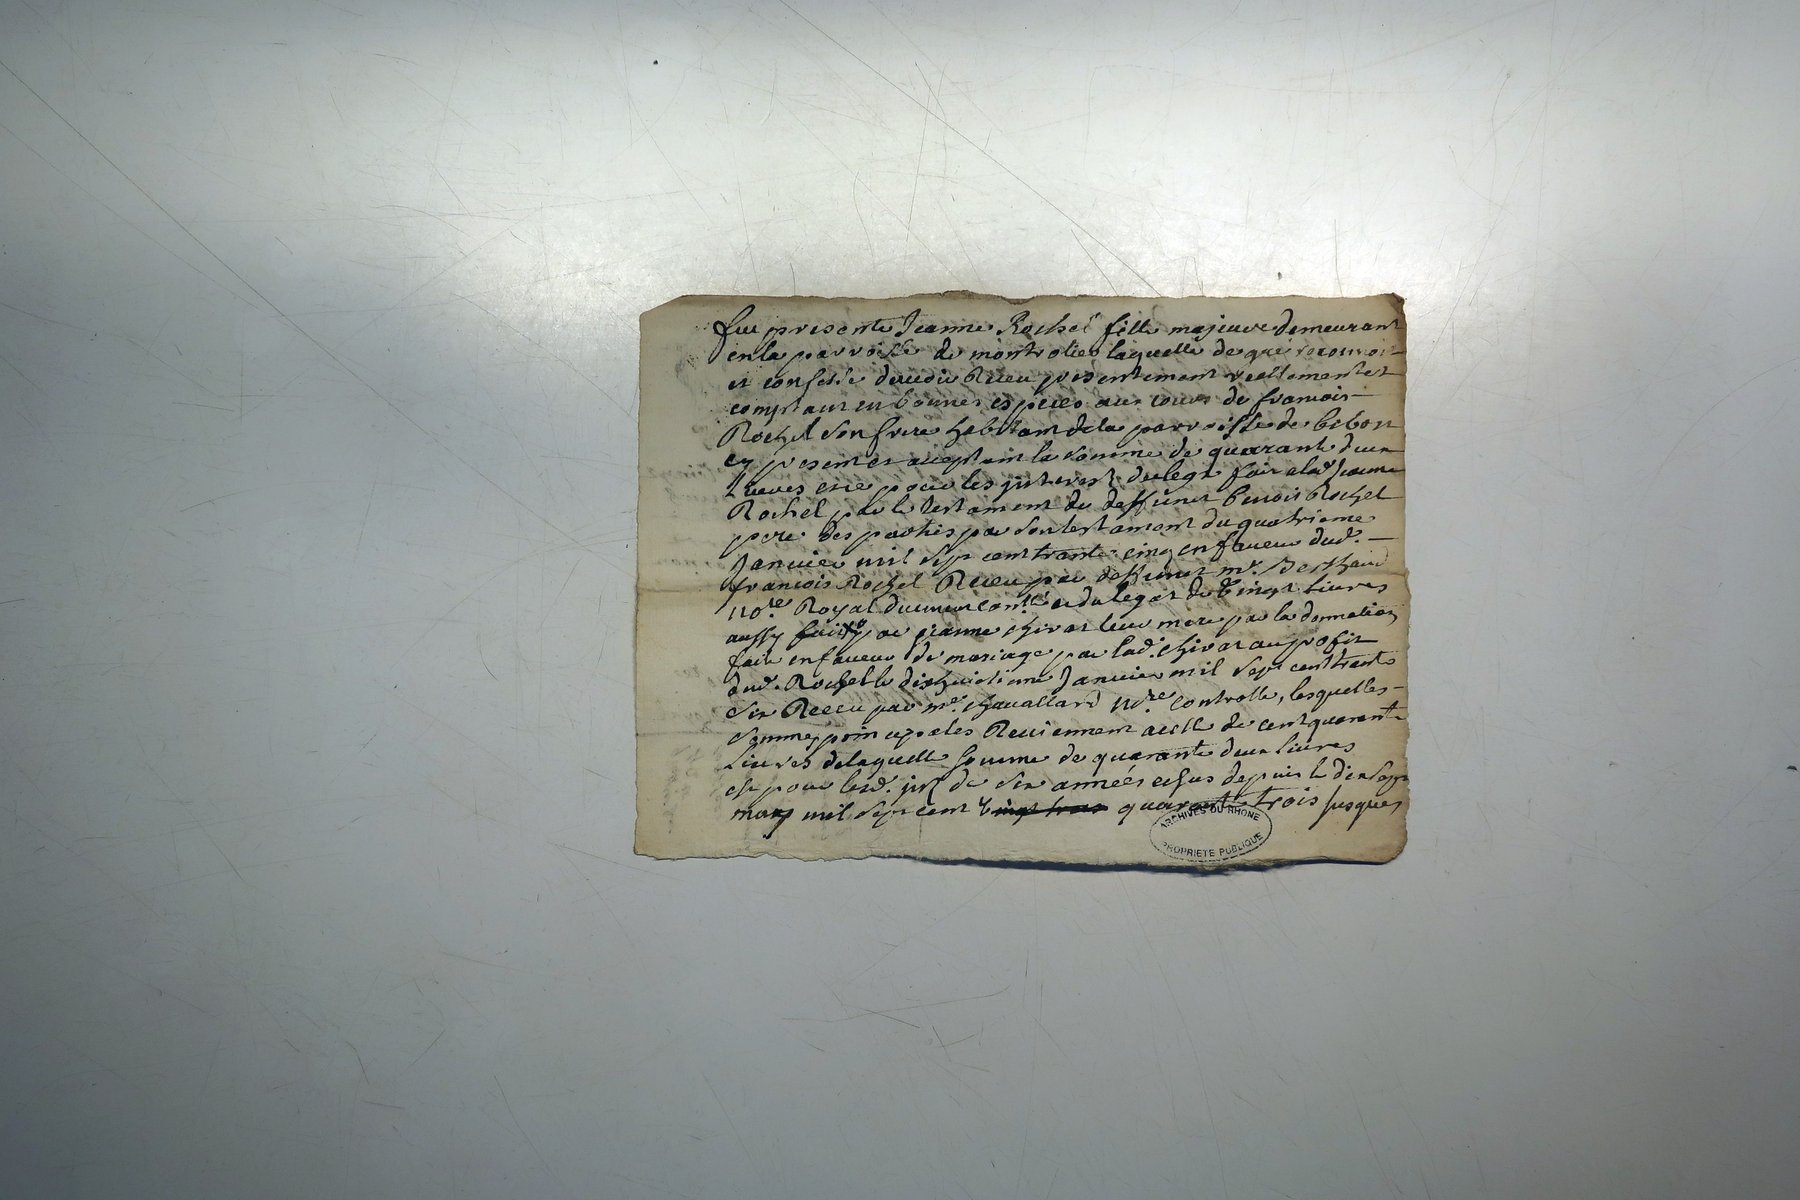 fut presente Jeanne Rochel fille majeure demeurant
en la parroisse de montrotier laquelle de gré reconnoit
et confesse davedir Receu presentement reellement et
comptant en bonnes especes aux cours de francois
Rochel son frere habitant de la parroisse de bibost
cy present et acceptant la somme de quarante deux
livres et ce pour les interest du legat fait a lad. Jeanne
Rochel par le testament de deffunct benoist Rochel
pere des parties par son testament du quatrieme
Janvier mil sept cent trante cinq en faveur dud.
francois Rochel Receu par deffunct mr. Berthaud
nore. Royal duement conllé et du legat de vingt livres
aussy fait par jeanne chirat leur mere par la donnation
faite en faveur de mariage par lad. chirat au profit
dud. Rochel le dixhuictieme Janvier mil sept cent trante
six Receu par me. chavallard nore controllé, lesquelles
sommes principales Reviennent a celle de cent quarante
Livres de laquelle somme de quarante deux livres
est pour lesd. jnt de six années echus depuis le dix sept
mars mil sept cent vingt trois quarante trois jusques
ARCHIVES DU RHONE
PROPRIETE PUBLIQUE